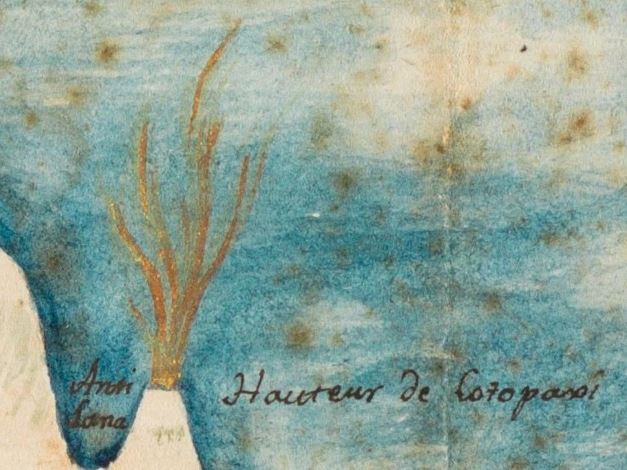 Anti
sana
Hauteur de Cotopaxi